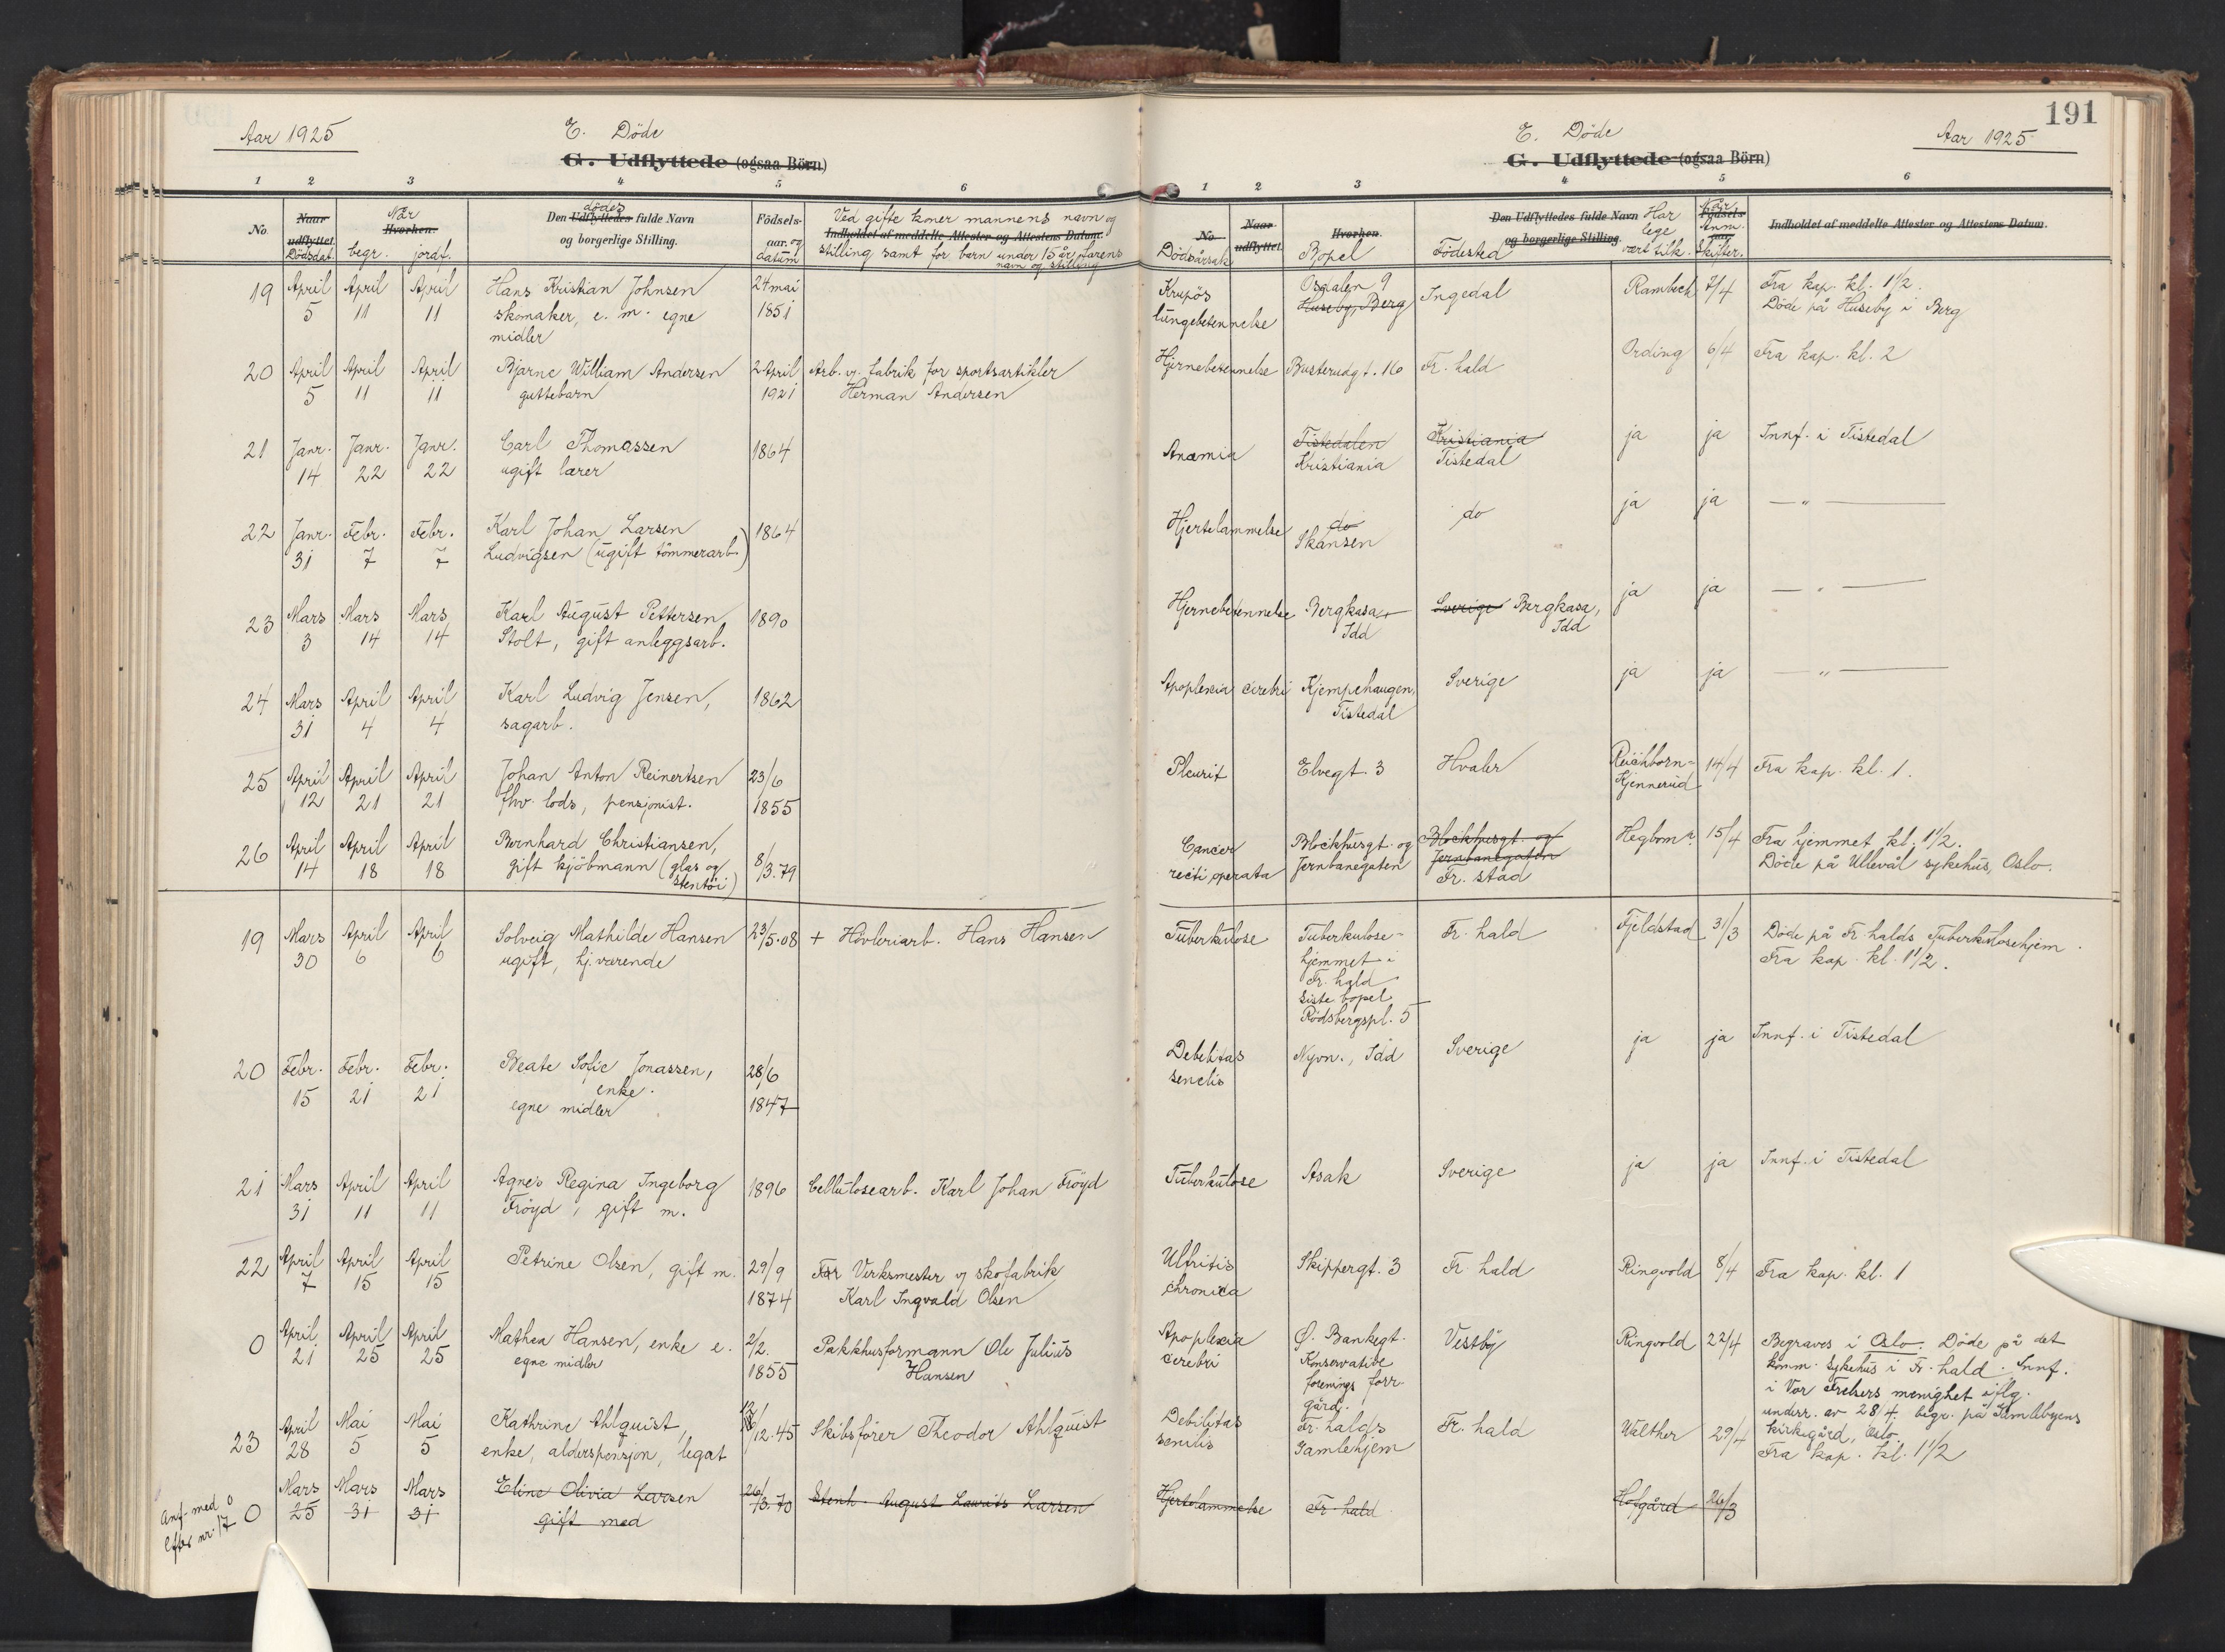 191
Aar 1925
E. Döde
G. Udflyttede (ogsaa Börn)
E. Döde
G. Udflyttede (ogsaa Börn)
Aar 1925
1 2 3 4 5 6
1 2 3 4 5 6
No. Naar udflyttet. Dödsdat. Når Hvorhen. begr. jordf. Den Udflyttedes dödes fulde Navn og borgerlige Stilling. Födsels-aar. og datum
Ved gifte koner mannens navn og
Indholdet af meddelte Attester og Attestens Datum.
stilling samt for barn under 15 år farens
navn og stilling
No. Dödsårsak Naar udflyttet. Hvorhen. Bopel Den Udflyttedes fulde Navn og borgerlige Stilling. Födested Har lege vært tilk. Födsels-aar. Når Anm. Skifter. Indholdet af meddelte Attester og Attestens Datum.
19 April April April Hans Kristian Johnsen 24 mai
5 11 11 skomaker, e. m. egne 1851
midler
Krupös Osdalen 9 Ingedal Rambech 7/4 Fra kap. kl. 1 1/2.
lungebetennelse Huseby, Berg Döde på Huseby i Berg
20 April April April Bjarne William Andersen 2 April Arb. v. fabrik for sportsartikler
5 11 11 guttebarn 1921 Herman Andersen
Hjernebetennelse Busterudgt. 16 Fr. hald Ording 6/4 Fra kap. kl. 2
21 Janr. Janr. Janr. Carl Thomassen 1864
14 22 22 ugift lærer
Anæmia Tistedalen Kristiania ja ja Innf. i Tistedal
Kristiania Tistedal
22 Janr. Febr. Febr. Karl Johan Larsen 1864
31 7 7 Ludvigsen (ugift tömmerarb.)
Hjertelammelse do do ja ja — " —
Skansen
23 Mars Mars Mars Karl August Pettersen 1890
3 14 14 Stolt, gift anleggsarb.
Hjernebetennelse Bergkasa Sverige Bergkasa, ja ja — " —
Idd Idd
24 Mars April April Karl Ludvig Jensen, 1862
31 4 4 sagarb.
Apoplexia cerebri Kjempehaugen, Sverige ja ja — " —
Tistedal
25 April April April Johan Anton Reinertsen 23/6
12 21 21 fhv. lods, pensjonist. 1855
Pleurit Elvegt. 3 Hvaler Reichborn- 14/4 Fra kap. kl. 1.
Kjennerud
26 April April April Bernhard Christiansen, 8/3.79
14 18 18 gift kjöbmann (glas og
stentöi)
Cancer Blockhusgt. og Blockhusgt. og Hegbom 15/4 Fra hjemmet kl. 1 1/2.
recti operata Jernbanegaten Jernbanegaten Döde på Ullevål sykehus, Oslo.
Fr. stad
19 Mars April April Solveig Mathilde Hansen 23/5.08 + Hövleriarb. Hans Hansen
30 6 6 ugift, hj. værende
Tuberkulose Tuberkulose- Fr. hald Fjeldstad 31/3 Döde på Fr. halds Tuberkulosehjem.
hjemmet i Fra kap. kl. 1 1/2.
Fr. hald
siste bopel
Rødsbergspl. 5
20 Febr. Febr. Febr. Beate Sofie Jonassen, 28/6
15 21 21 enke. 1847
egne midler
Debilitas Sverige ja ja Innf. i Tistedal
senilis Idd
21 Mars April April Agnes Regina Ingeborg 1896 Cellulosearb. Karl Johan Fröyd
31 11 11 Fröyd, gift m.
Tuberkulose Asak Sverige ja ja Innf. i Tistedal
22 April April April Petrine Olsen, gift m. 29/9 Verksmester v skofabrik
7 15 15 1874 Karl Ingvald Olsen
chronica Skippergt. 3 Fr. hald Ringvold 8/4 Fra kap. kl. 1
0 April April April Mathea Hansen, enke e. 2/2. Pakkhusformann Ole Julius
21 25 25 egne midler 1855 Hansen
Apoplexia Ø. Bankegt. Vestby Ringvold 22/4 Begraves i Oslo. Döde på det
cerebri Konservative komm. sykehus i Fr. hald. Innf.
forenings forr. i Vor Frelsers menighet iflg.
gård. underr. av 28/4. begr. på Gamlebyens
kirkegård, Oslo
23 April Mai Mai Kathrine Ahlquist, 12/12.45 Skibsförer Theodor Ahlquist
28 5 5 enke, alderspensjon, legat
Debilitas Fr. halds Fr. hald Walther 29/4 Fra kap. kl. 1 1/2
senilis Gamlehjem
Anf. med 0
efter nr. 17
0 Mars Mars Mars Eline Olivia Larsen 26/3.70 Stenh. August Laurits Larsen
25 31 31 gift med
Hjertelammelse Fr. hald Hofgård 26/3